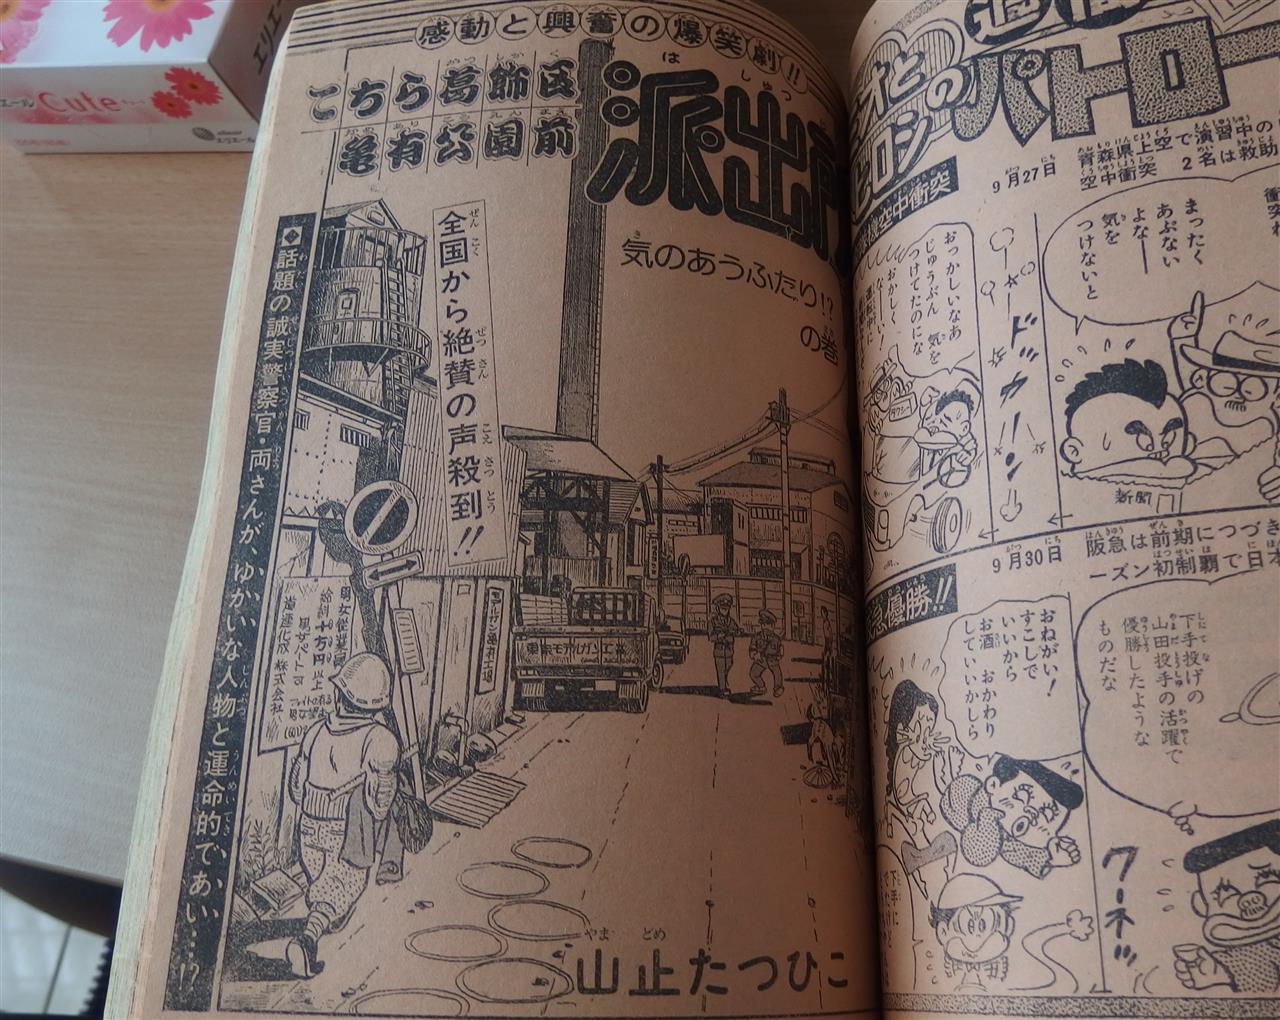 感動と興奮の爆笑劇!!
こちら葛飾区
亀有公園前
派出
はしゅつ
気のあうふたり!?
の巻
全国から絶賛の声殺到!!
◆話題の誠実警察官・両さんが、ゆかいな人物と運命的であい…!?
男女従業員
給料十万円以上
株式会社
東京モデルガン工
モデルガン亀有工場
やまどめ
山止たつひこ
エリエール
Cute
エリエール
パトロー
9月27日
青森県上空で演習中の
空中衝突 2名は救助
機空中衝突
まったく
あぶない
よなー
気を
つけないと
おっかしいなあ
じゅうぶん 気を
つけてたのにな
おかしく
なーい!
ドッカーン
新聞
9月30日
阪急は前期につづき
ーズン初制覇で日本
急優勝!!
下手投げの
山田投手の活躍で
優勝したような
ものだな
おねがい!
すこしで
いいから
お酒 おかわり
していいかしら
ワーネッ